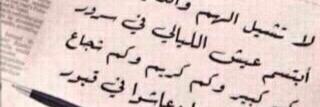 لا تشيل الهم
أبتسم عيش الليالي في سرور
كبير وكم كريم وكم شجاع
عاشوا في قبور